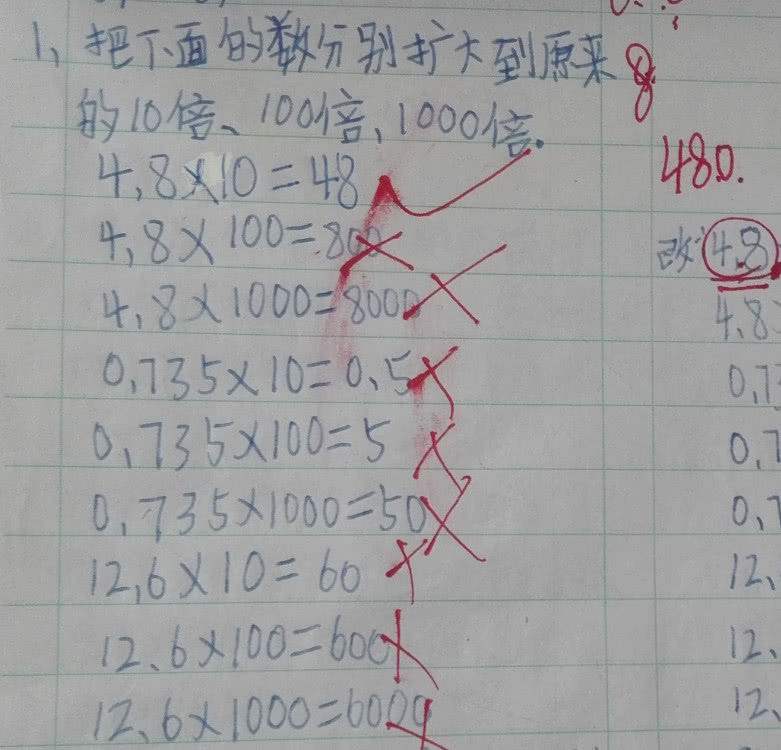 1、把下面的数分别扩大到原来
的10倍、100倍、1000倍.
4.8×10=48
4.8×100=800
4.8×1000=8000
0.735×10=0.5
0.735×100=5
0.735×1000=50
12.6×10=60
12.6×100=600
12.6×1000=6000
8
480.
改：4.8
4.8
0.7
0.7
0.7
12.
12.
12.